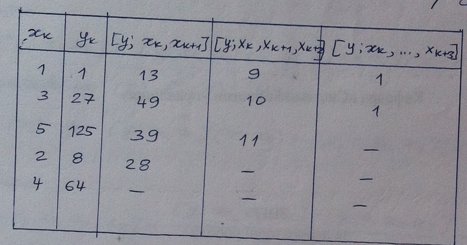 xk yk [y; xk, xk+1] [y; xk, xk+1, xk+2] [y; xk, ..., xk+3]
1 1 13 9 1
3 27 49 10 1
5 125 39 11 –
2 8 28 – –
4 64 – – –